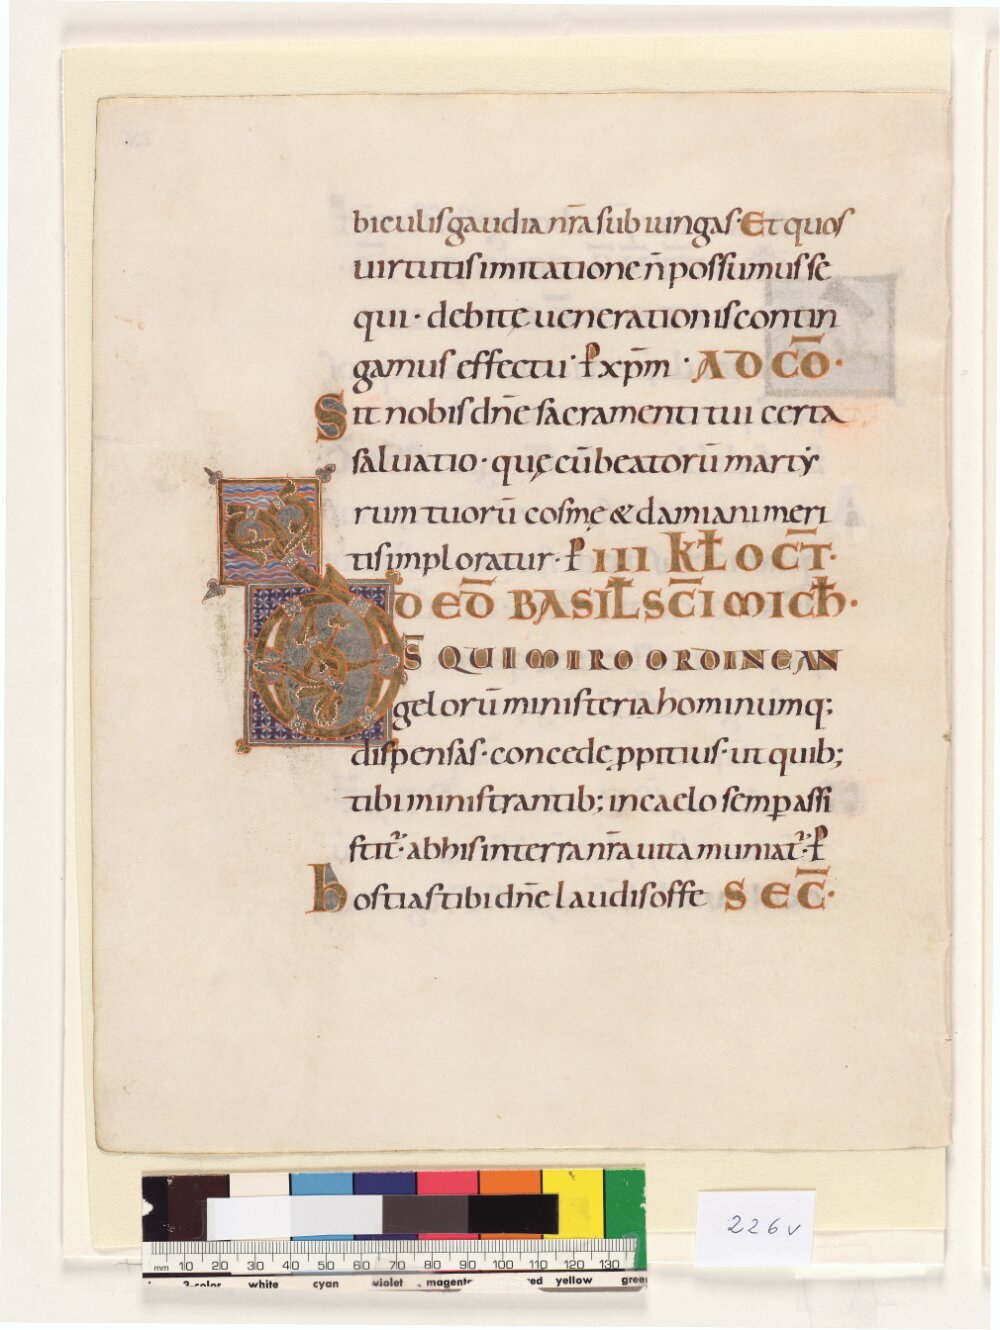 biculis gaudia nr̄a subiungas· Et quos
uirtutis imitatione n̄ possumus se
qui· debitę uenerationis contin
gamus effectu· ꝑ xp̄m · AD CŌ·
Sit nobis dn̄e sacramenti tui certa
saluatio· quę cū beatorū marty
rum tuorū cosmę & damiani meri
tis imploratur· ꝑ III KŁ OCT̄·
DED̄ BASIŁ SC̄I MICH̄·
D̄S QUI MIRO ORDINE AN
gelorū ministeria hominumq;
dispensas· concede ꝓpitius· ut quib;
tibi ministrantib; in caelo semꝑ assi
stit᷑· ab his in terra nr̄a uita muniat᷑· ꝑ
hostias tibi dn̄e laudis offe SEC̄·
226v
mm 10 20 30 40 50 60 70 80 90 100 110 120 130
3-color white cyan violet magenta red yellow green